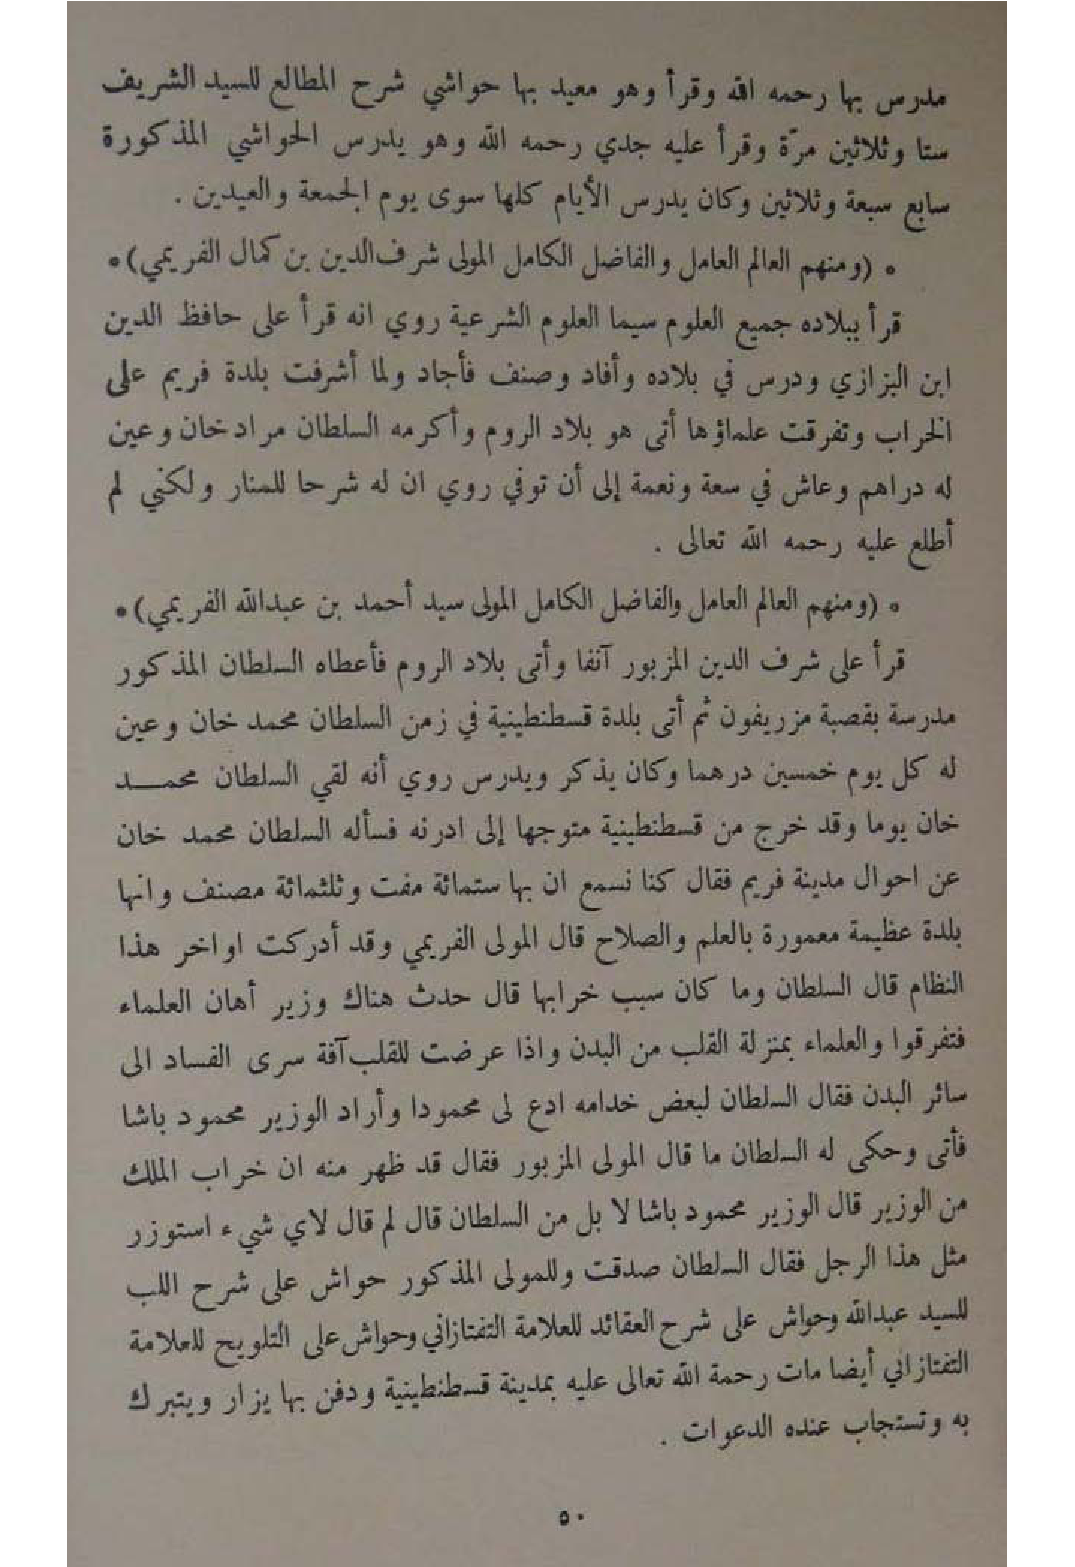 مدرس بها رحمه الله وقرأ وهو معيد بها حواشي شرح المطالع للسيد الشريف
ستا وثلاثين مرّة وقرأ عليه جدي رحمه الله وهو يدرس الحواشي المذكورة
سابع سبعة وثلاثين وكان يدرس الأيام كلها سوى يوم الجمعة والعيدين .
* (ومنهم العالم العامل والفاضل الكامل المولى شرف الدين بن كمال القريمي) *
قرأ ببلاده جميع العلوم سيما العلوم الشرعية روي انه قرأ على حافظ الدين
ابن البزازي ودرس في بلاده وأفاد وصنف فأجاد ولما أشرفت بلدة قريم على
الخراب وتفرقت علماؤها أتى هو بلاد الروم وأكرمه السلطان مراد خان وعين
له دراهم وعاش في سعة ونعمة إلى أن توفي روي ان له شرحا للمنار ولكني لم
أطلع عليه رحمه الله تعالى .
* (ومنهم العالم العامل والفاضل الكامل المولى سيد أحمد بن عبدالله القريمي) *
قرأ على شرف الدين المزبور آنفا وأتى بلاد الروم فأعطاه السلطان المذكور
مدرسة بقصبة مزريفون ثم أتى بلدة قسطنطينية في زمن السلطان محمد خان وعين
له كل يوم خمسين درهما وكان يذكر ويدرس روي أنه لقي السلطان محمد
خان يوما وقد خرج من قسطنطينية متوجها إلى ادرنه فسأله السلطان محمد خان
عن احوال مدينة قريم فقال كنا نسمع ان بها ستمائة مفت وثلثمائة مصنف وانها
بلدة عظيمة معمورة بالعلم والصلاح قال المولى القريمي وقد أدركت اواخر هذا
النظام قال السلطان وما كان سبب خرابها قال حدث هناك وزير أهان العلماء
فتفرقوا والعلماء بمنزلة القلب من البدن واذا عرضت للقلب آفة سرى الفساد الى
سائر البدن فقال السلطان لبعض خدامه ادع لى محمودا وأراد الوزير محمود باشا
فأتى وحكى له السلطان ما قال المولى المزبور فقال قد ظهر منه ان خراب الملك
من الوزير قال الوزير محمود باشا لا بل من السلطان قال لم قال لاي شيء استوزر
مثل هذا الرجل فقال السلطان صدقت وللمولى المذكور حواش على شرح اللب
للسيد عبدالله وحواش على شرح العقائد للعلامة التفتازاني وحواش على التلويح للعلامة
التفتازاني أيضا مات رحمة الله تعالى عليه بمدينة قسطنطينية ودفن بها يزار ويتبرك
به وتستجاب عنده الدعوات .
٥٠